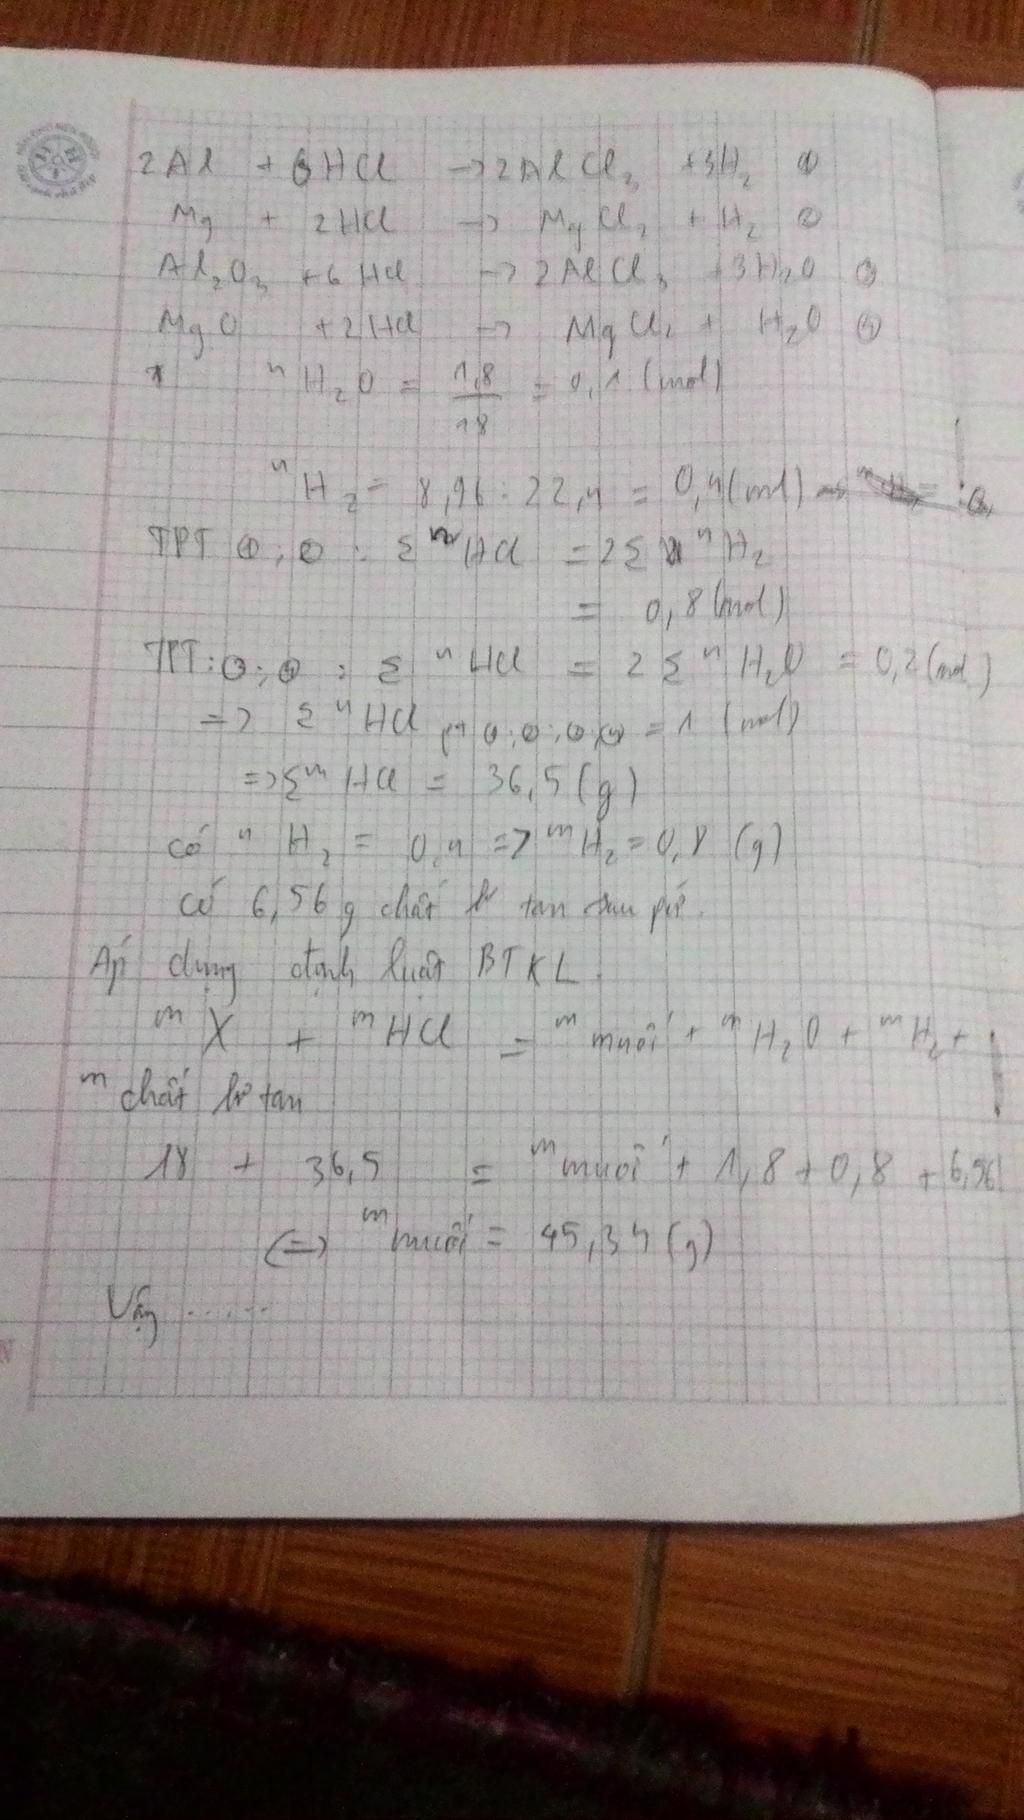 2Al + 6HCl -> 2AlCl3 + 3H2 ①
Mg + 2HCl -> MgCl2 + H2 ②
Al2O3 + 6HCl -> 2AlCl3 + 3H2O ③
MgO + 2HCl -> MgCl2 + H2O ④
* nH2O = 1,8/18 = 0,1 (mol)
nH2 = 8,96 : 22,4 = 0,4 (mol)
TPT ①; ② : Σ nHCl = 2Σ nH2
= 0,8 (mol)
TPT: ③; ④ : Σ nHCl = 2Σ nH2O = 0,2 (mol)
=> Σ nHCl pt ①; ②; ③; ④ = 1 (mol)
=> Σ mHCl = 36,5 (g)
có nH2 = 0,4 => mH2 = 0,8 (g)
có 6,56 g chất ko tan sau pứ.
Áp dụng định luật BTKL.
mX + mHCl = m muối + mH2O + mH2 +
m chất ko tan
18 + 36,5 = m muối + 1,8 + 0,8 + 6,56
<=> m muối = 45,34 (g)
Vậy ......